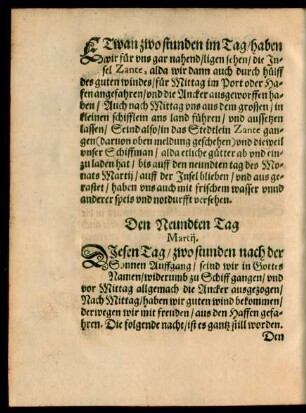 ETwan zwo stunden im Tag/haben
wir für vns gar nahend/ligen sehen/die In-
sel Zante, alda wir dann auch durch hülff
des guten windes/für Mittag im Port oder Ha-
fen angefahren/vnd die Ancker ausgeworffen ha-
ben/Auch nach Mittag vns aus dem grossen/in
kleinen schifflein ans land führen/vnd aussetzen
lassen/Seind also/in das Stedtlein Zante gan-
gen (daruon oben meldung geschehen) vnd dieweil
vnser Schiffman/alda etliche gütter ab vnd ein-
zu laden hat/bis auff den neundten tag des Mo-
nats Martij/auff der Insel blieben/vnd aus ge-
rastet/haben vns auch mit frischem wasser vnnd
anderer speis vnd notdurfft versehen.
Den Neundten Tag
Martij.
DJesen Tag/zwo stunden nach der
Sonnen Auffgang/seind wir in Gottes
Namen/widerumb zu Schiff gangen/vnd
vor Mittag allgemach die Ancker ausgezogen/
Nach Mittag/haben wir guten wind bekommen/
derwegen wir mit freuden/aus den Haffen gefa-
hren. Die folgende nacht/ist es gantz still worden.
Den